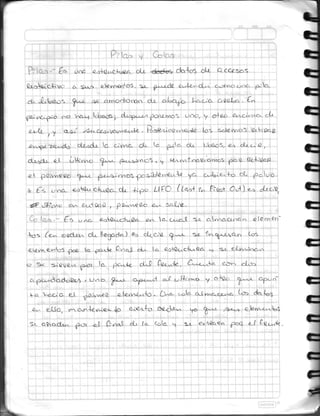 Pilas y Colas
Pilas - Es una estructura de datos de accesos
a sus elementos, se puede entender como una pila
de libros, que se amontonan de abajo hacia arriba. En
principio no hay libros, después ponemos uno, y otro encima de
este, y así sucesivamente. Posteriormente los solemos retirar
empezando desde la cima de la pila de libros, es decir,
desde el último que pusimos, y terminaríamos por retirar
el primero que pusimos posiblemente ya cubierto de polvo.
* Es una estructura de tipo LIFO (last in First Out) es decir
último en entrar, primero en salir.
Colas - Es una estructura en la cual se almacenan elemen-
tos (en orden de llegada) es decir que se los
elementos por la parte final de la estructura y se eliminan
o se sirven por la parte del frente. Cuenta con dos
apuntadores, uno que apunta al último y otro que apun-
ta hacia el primer elemento. Una cola almacena los datos
en ella, manteniendo cierto orden ya que sus elementos
se añaden por el final de la cola y se extraen por el frente.